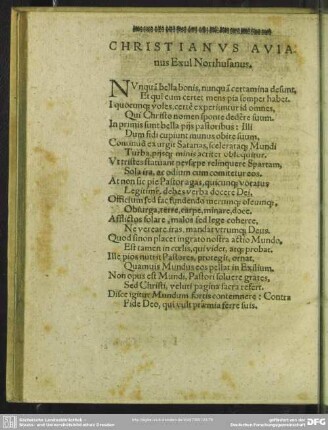 CHRISTIANVS AVIA
nus Exul Northusanus.
NVnquã bella bonis, nunquã certamina desunt,
Et qui cum certet mens pia semper habet.
Iquocunq; voles, certè experiuntur id omnes,
Qui Christo nomen sponte dedêre suum.
In primis sunt bella pijs pastoribus: Illi
Dum fidi cupiunt munus obire suum.
Continuò exurgit Satanas, sceleratáq; Mundi
Turba, pijsq; minis acriter obsequitur.
Vt tristes statuant
relinquere Spartam,
Sola ira, ac odium cum comitetur eos.
At non sic pie Pastor agas, quicunq; vocatus
Legitimè, debes verba docere Dei.
Officium sed fac fundendo utrumq; oleumq;
Obiurga, terre, carpe, minare, doce.
Afflictos solare, malos sed lege coherce,
Ne vereare iras, mandat vtrumq; Deus.
Quod si non placet ingrato nostra actio Mundo,
Est tamen in cœlis, qui videt, atq; probat.
Ille pios nutrit Pastores, protegit, ornat,
Quamuis Mundus eos pellat in Exilium.
Non opus est Mundi, Pastori soluere grates,
Sed Christi, veluti pagina sacra refert.
Disce igitur Mundum fortis contemnere: Contra
Fide Deo, qui vult præmia ferre suis.
Sächsische Landesbibliothek -
Staats- und Universitätsbibliothek Dresden
gefördert von der
Deutschen Forschungsgemeinschaft
DFG